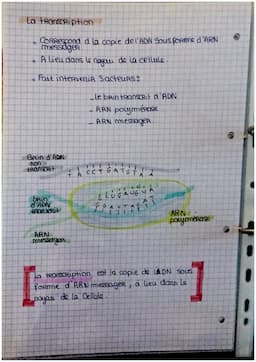 La transcription
- Correspond à la copie de l'ADN sous forme d'ARN
messager
- A lieu dans le noyau de la cellule
- Fait intervenir 3acteurs:
- Le brin transcrit d'ADN
- ARN polymérase
- ARN messager
Brin d'ADN
non
transcrit
TACCTGATGTAA
brin
d'ADN
transcrit
ARN
polymérase
ARN
messager
La transcription est la copie de l'ADN sous
forme d'ARN messager, à lieu dans le
noyau de la Cellule